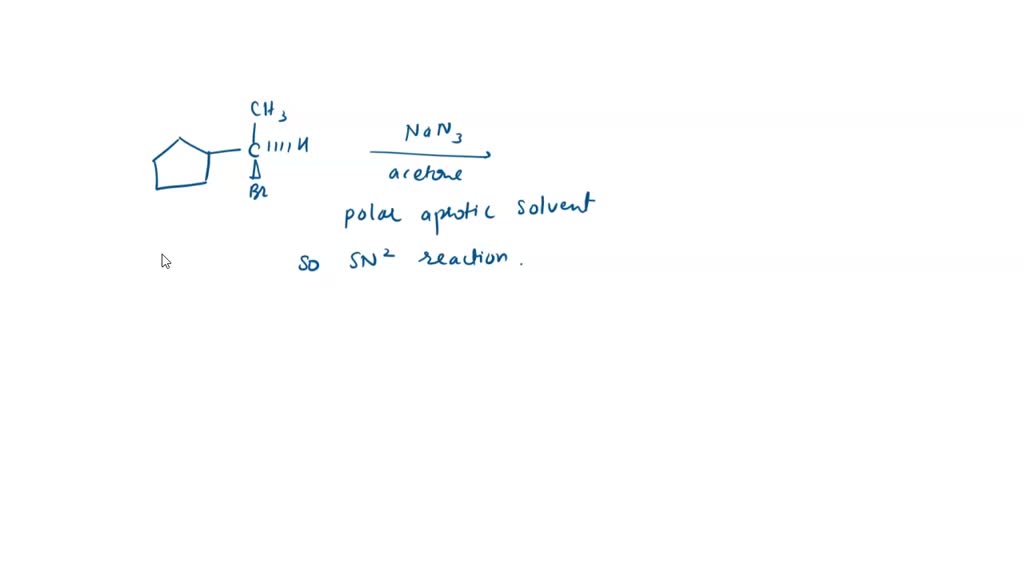 CH3
C H
Br
NaN3
acetone
polar aprotic solvent
so SN2 reaction.